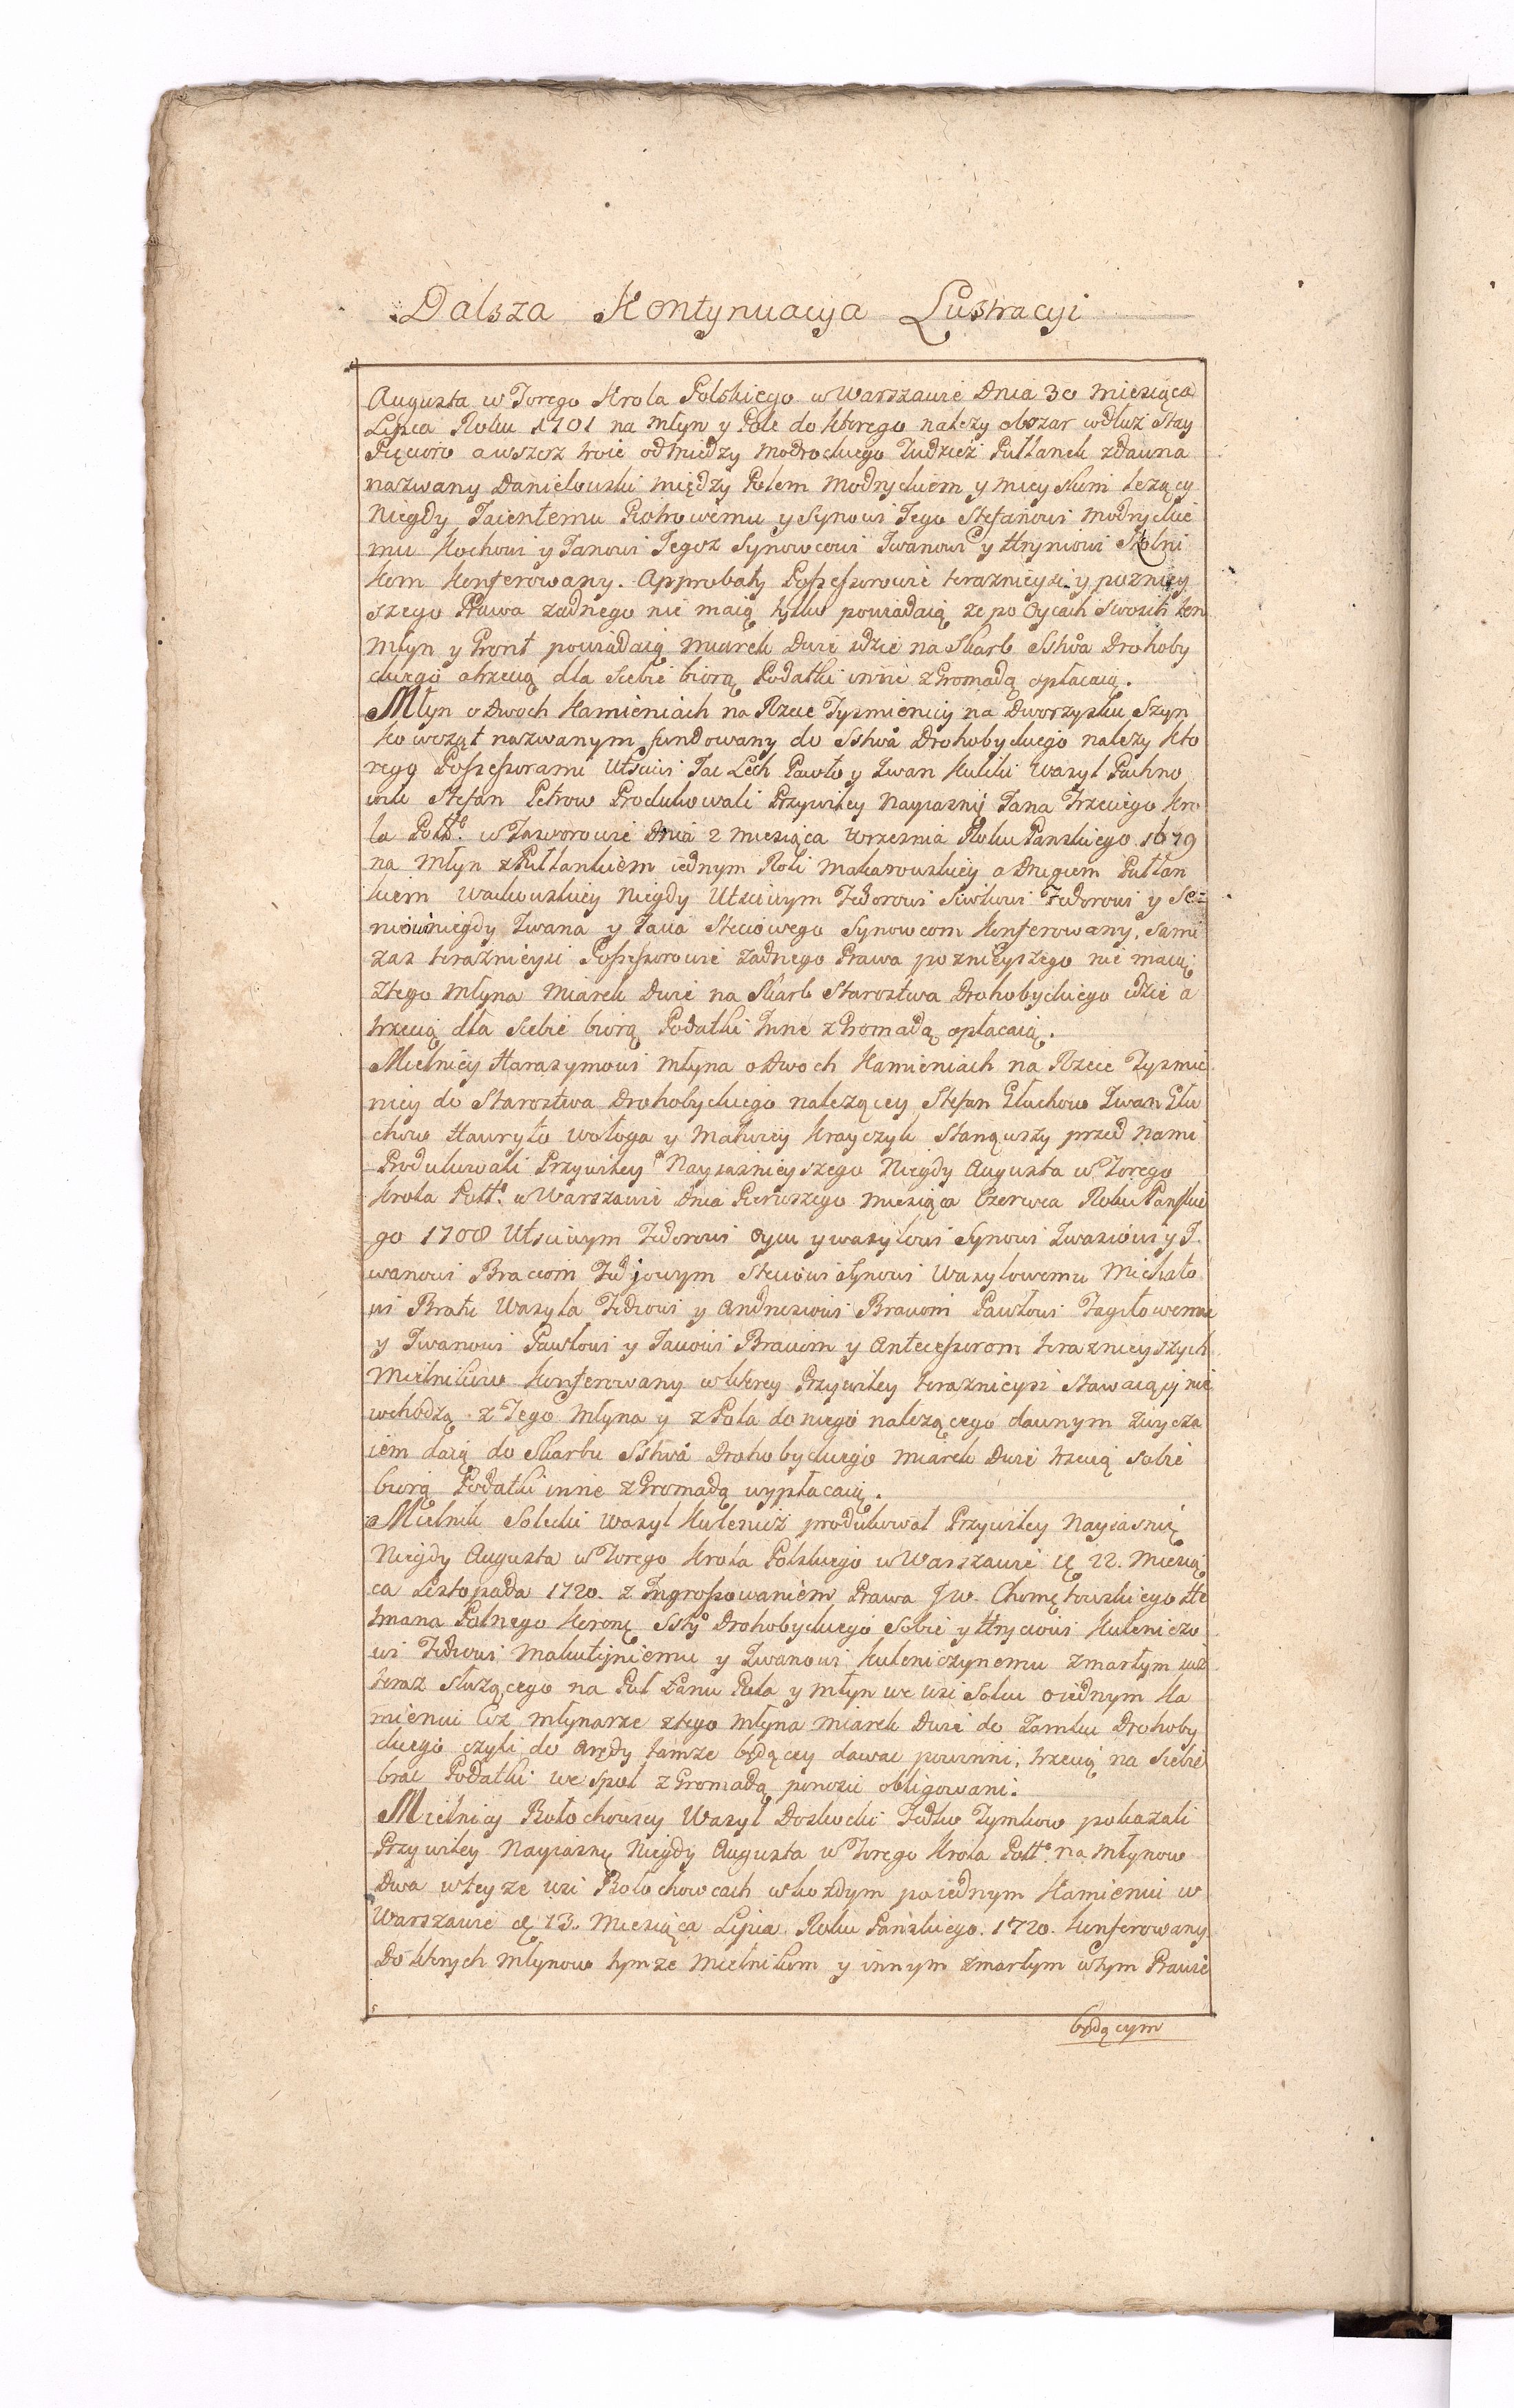 Dalsza Kontynuacyja Lustracyi
Augusta wTorego Krola Polskiego w Warszawie Dnia 30 miesiąca
Lipca Roku 1701 na Młyn y Pole do ktorego nalezy obszar wdłuż Stay
Pięcioro a wszerz troie od miedzy modryckiego Tudzież Pułłanek zdawna
nazwany Danielowski między Polem Modryckiem y mieyskim lezący
Niegdy Jacentemu Piotrowemu y Synowi Jego Stefanowi Modryckie
mu Kochowi y Janowi Jegoż Synowcowi Iwanowi y Hryniowi Skolni
kom konferowany. Approbaty Possessorowie teraznieysi y poznieÿ
szego Prawa zadnego nie maią tylko powiadaią ze po Oycach Swoich ten
Młyn y Gront powiadaią miarek Dwie idzie na Skarb Sstwa Drohoby
ckiego a trzecią dla Siebie biorą Podatki inne z Gromadą opłacaią.
Młyn o Dwoch Kamieniach na Rzece Tysmienicy na Dworzysku Szyn
kowcząt nazwanym fundowany do Sstwa Drohobyckiego nalezy kto
rego Possessorami Utsciwi Jac Lech Pawło y Iwan Kuliki Wasyl Pachno
wik Stefan Petrow Produkowali Przywiley Nayiasniÿ Jana Trzeciego Kro
la Polle. w Jaworowie Dnia 2 miesiąca Wrzesnia Roku Panskiego 1679
na Młyn z Pułłankiem iednym Roli Makarowskiey a Drugiem Pułłan
kiem Wackowskiey Niegdy Utsciwym Fedorowi Siwkowi Fedorowi y Se=
niowi niegdy Iwana y Jaca Steciowego Synowcom konferowany, sami
zas teraznieysi Possessorowie zadnego Prawa poznieyszego nie maią
Ztego Młyna Miarek Dwie na Skarb Starostwa Drohobyckiego idzie a
trzecią dla Siebie biorą Podatki Inne z Gromadą opłacaią.
Mielnicy Harasymowi Młyna o Dwoch Kamieniach na Rzece Tysmie
nicy do Starostwa Drohobyckiego nalezącey Stefan Głuchow Iwan Głu
chow Hawryło Wołoga y Matwiey Krayczyk Stanąwszy przed Nami
Produkowali Przywiley Nayiasnieyszego Niegdy Augusta wTorego
Krola Polle. w Warszawie Dnia Pierwszego Miesiąca Czerwca Roku Panskie
go 1708 Utsciwym Fedorowi Oycu y Wasylowi Synowi Iwasiowi y I
wanowi Braciom Steciowi Synowi Wasylowemu Michało
wi Bratu Wasyla Fedkowi y Andruszowi Braciom Pawłowi Jagiłowemu
y Iwanowi Pawłowi y Jacowi Braciom y Antecessorom teraznieyszych
Mielnikow konferowany wktorey Przywiley teraznieysi Stawaiącyi nie
wchodzą z Tego Młyna y z Pola do niego nalezącego dawnym zwycza
iem daią do Skarbu Sstwa Drohobyckiego miarek Dwie trzecią sobie
biorą Podatki inne z Gromadą wypłacaią.
Mielnik Solecki Wasyl Kulenicz produkował Przywiley Nayiasnię
Niegdy Augusta wTorego Krola Polskiego w Warszawie dę 22. Miesią
ca Listopada 1720. z Ingrossowaniem Prawa JW. Chomętowskiego He
tmana Polnego Koronę Ssty Drohobyckiego Sobie y Hryciowi Kuleniczo
wi Fedkowi Makutyniemu y Iwanowi Kuleniczynemu zmarłym iuz
teraz słuzącego na Puł Łanu Pola y Młyn we wsi Solcu o iednym Ka
mieniu Ciż Młynarze ztego Młyna Miarek Dwie do Zamku Drohoby
ckiego czyli do Arędy tamze będącey dawac powinni, trzecią na Siebie
brac Podatki wespoł z Gromadą ponosic obligowani.
Mielnicy Bołochowscy Wasyl Doslucki Fedko Tymkow pokazali
Przywiley Nayiasnę Niegdy Augusta wTorego Krola Polle. na Młynow
Dwa wteyze wsi Bołochowcach wkozdym poiednym Kamieniu w
Warszawie dę 13. Miesiąca Lipca Roku Pańskiego. 1720. konferowany
Do ktorych Młynow tymze Mielnikom y innym zmarłym wtym Prawie
będącym